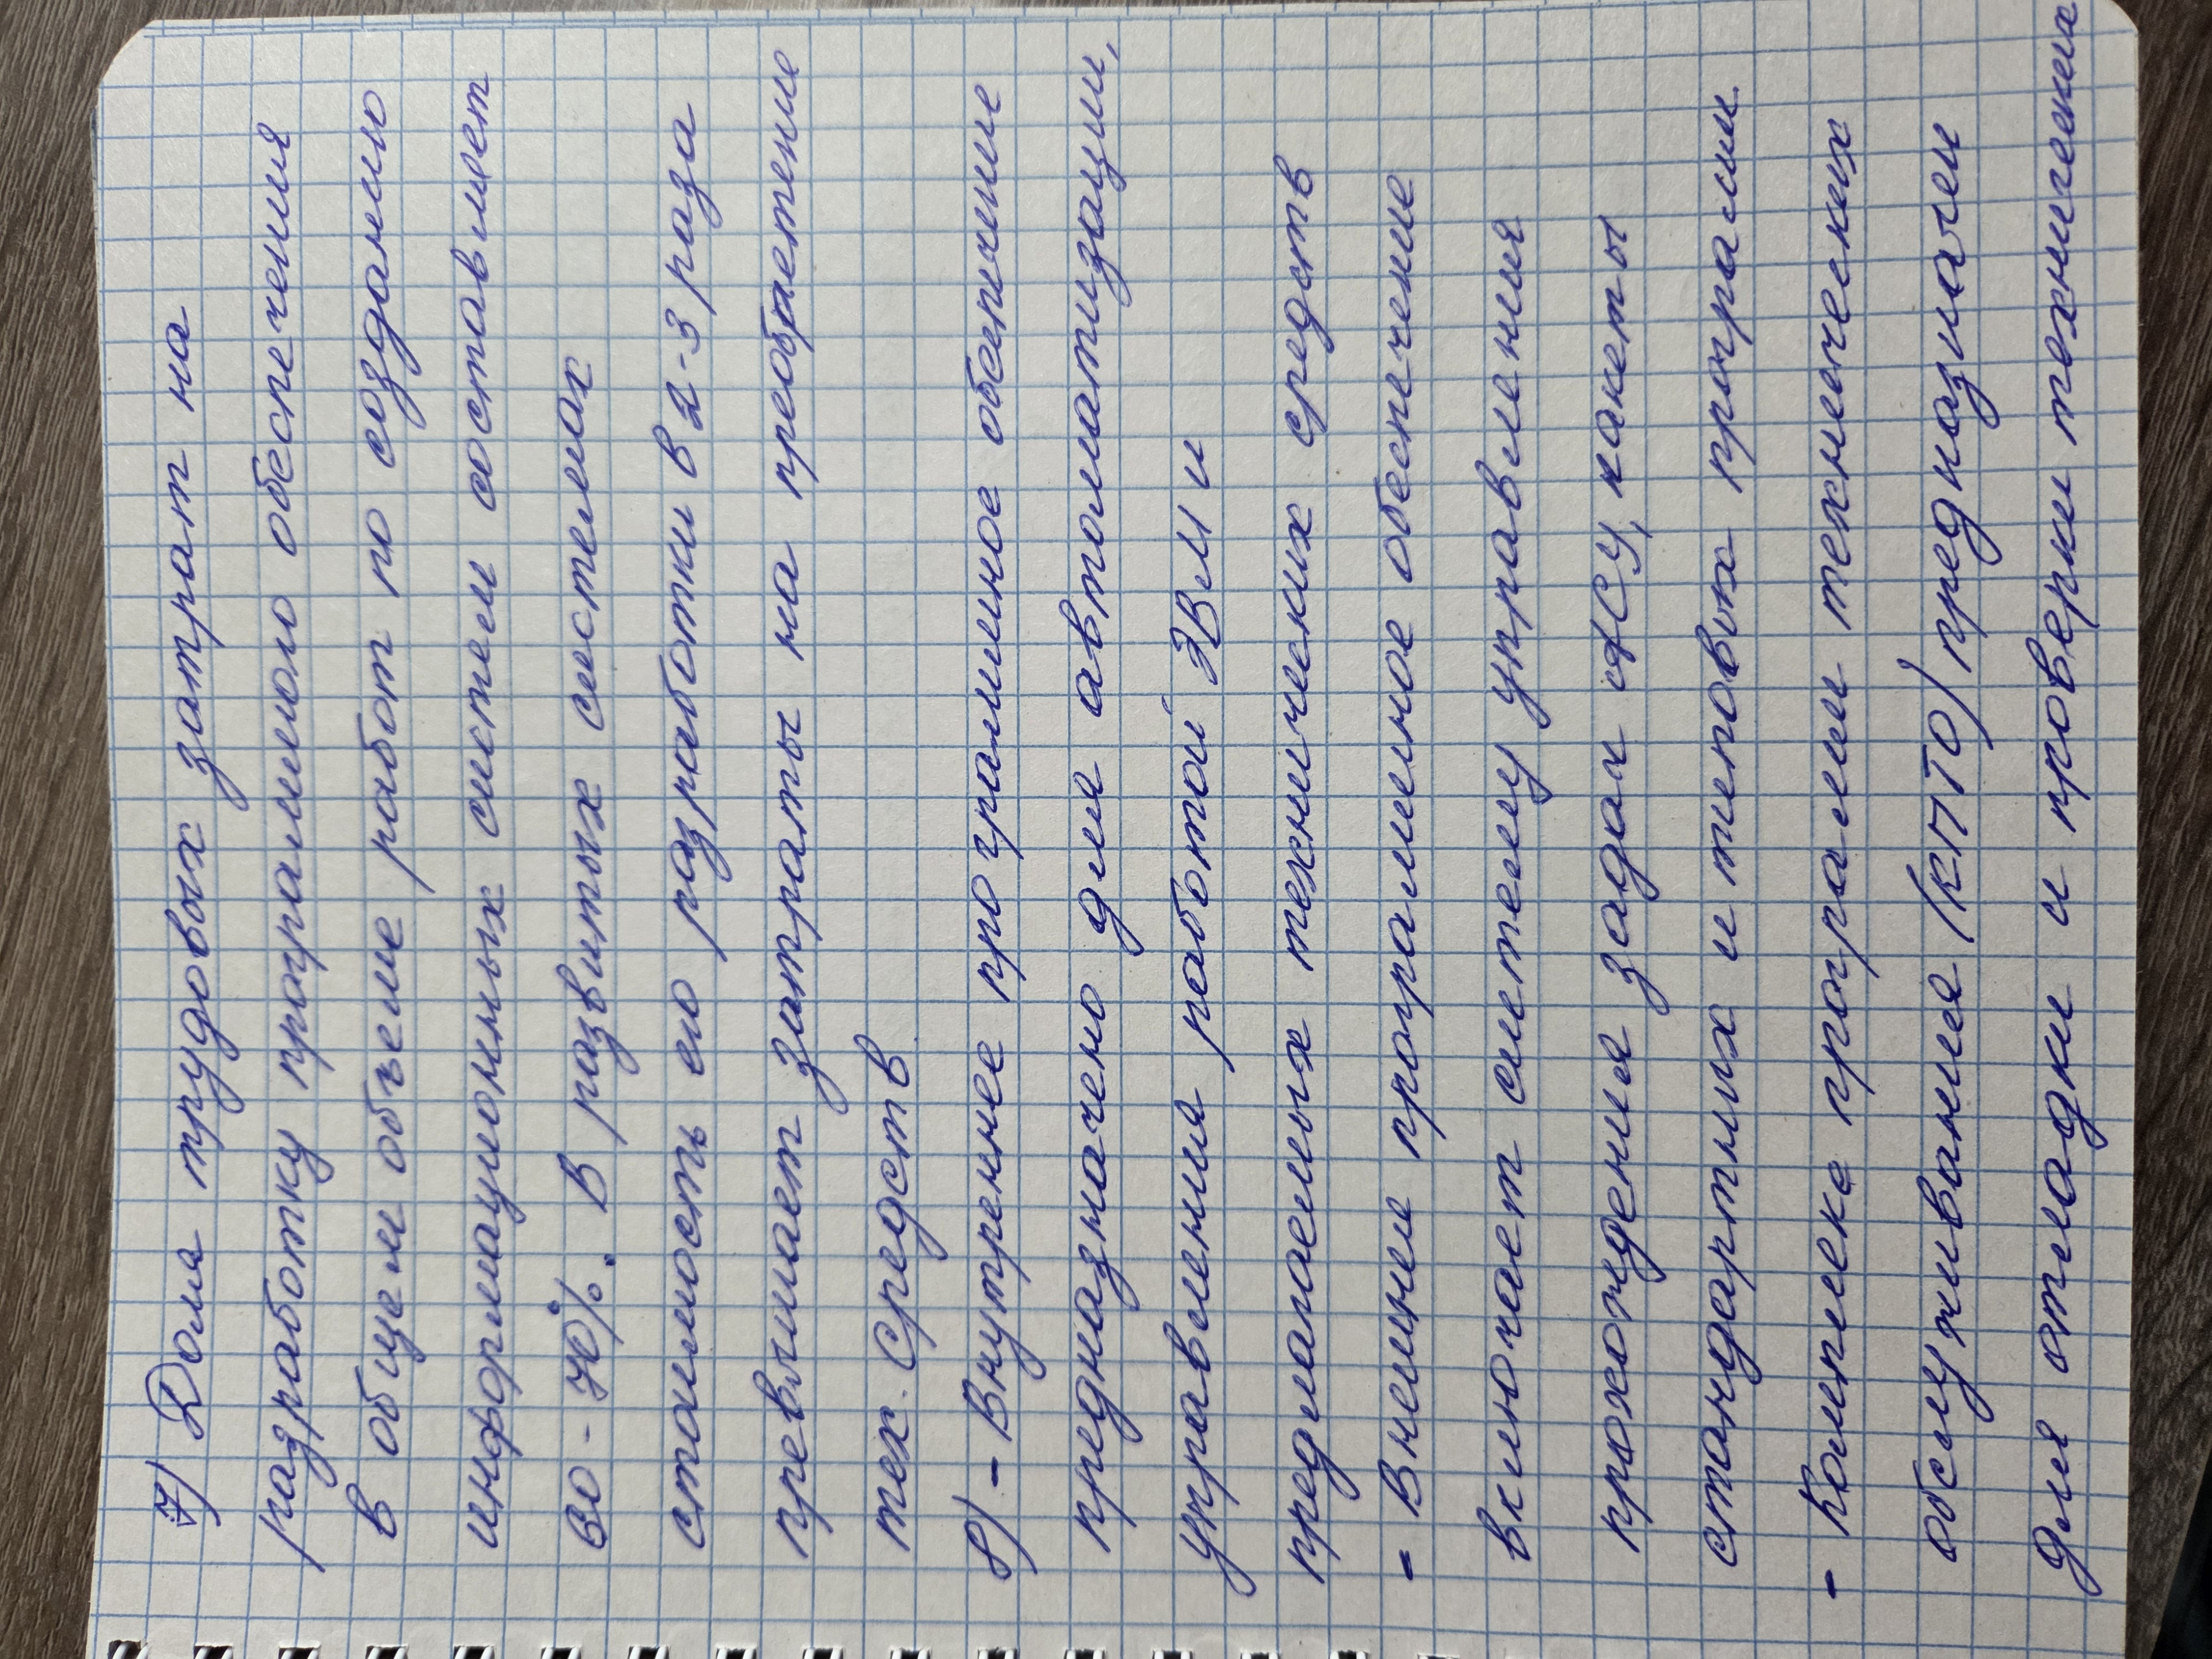 7) Доля трудовых затрат на
разработку программного обеспечения
в общем объеме работ по созданию
информационных систем составляет
60-70%. В развитых системах
стоимость его разработки в 2-3 раза
превышает затраты на преобретение
тех. средств
8) - Внутреннее программное обеспечение
предназначено для автоматизации,
управления работой ЭВМ и
предлагаемых технических средств
- Внешние программное обеспечение
включает систему управления
прохождения задач АСУ, пакеты
стандартных и типовых программ
- Комплекс программ технических
обслуживания (КПТО) предназначен
для отладки и проверки технических